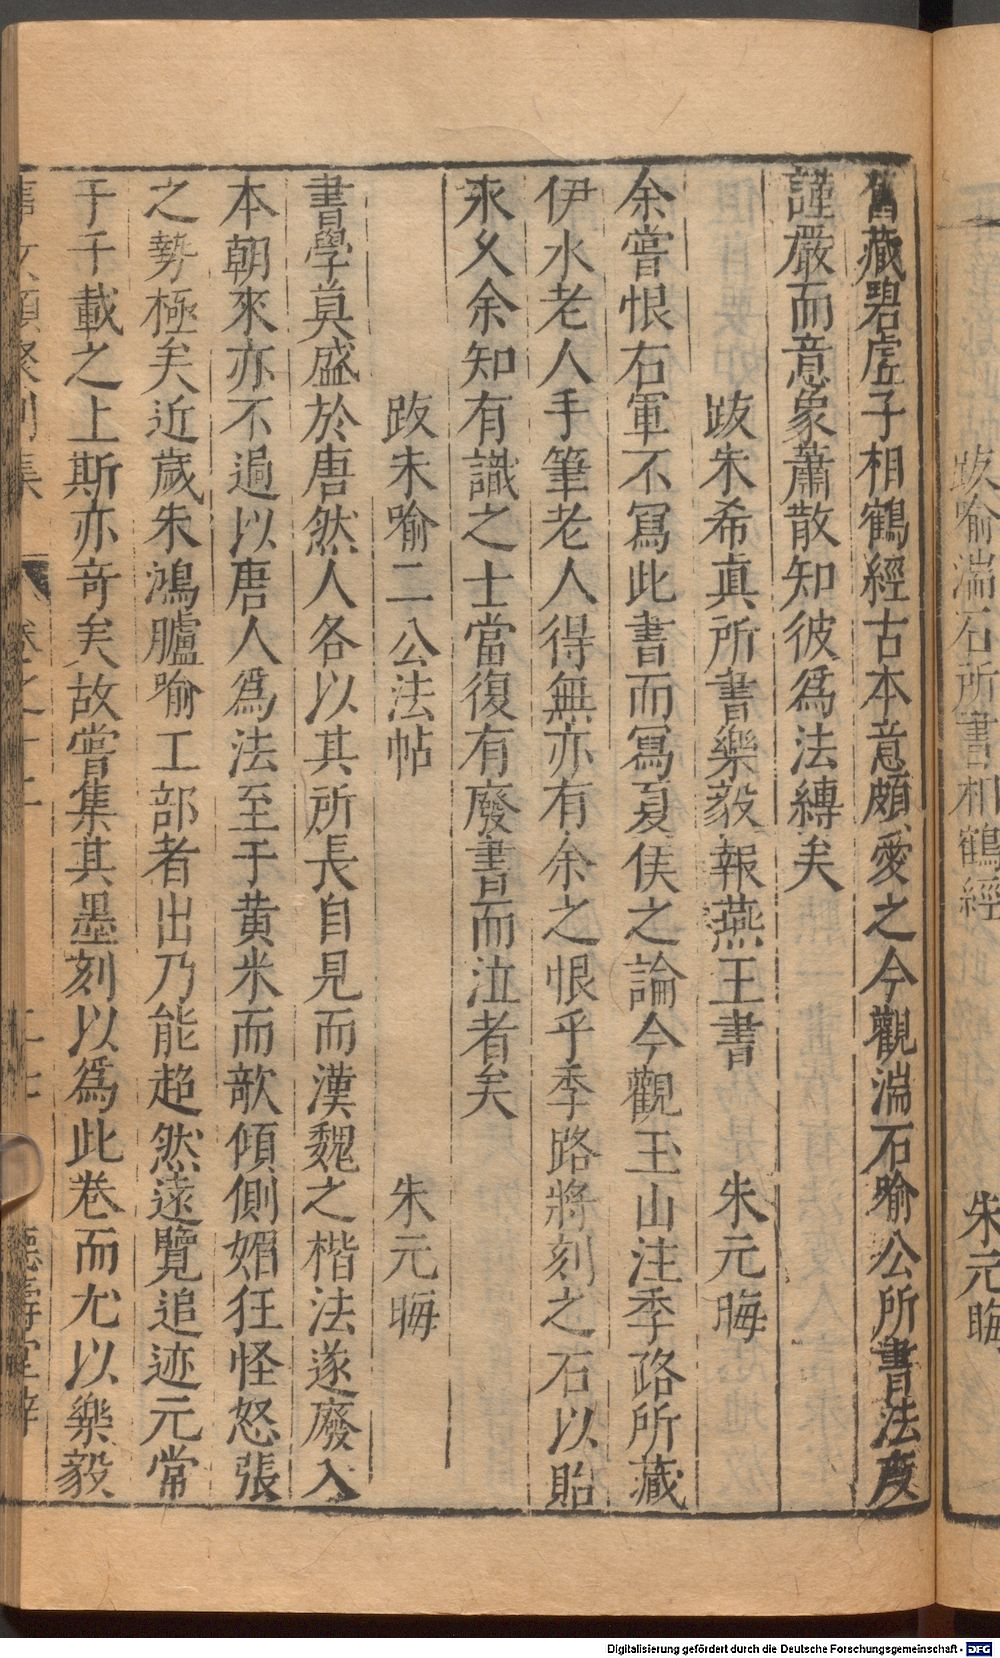 跋喻湍石所書相鶴經
朱元晦
舊藏碧虛子相鶴經古本意頗愛之今觀湍石喻公所書法度
謹嚴而意象蕭散知彼爲法縛矣
跋朱希真所書樂毅報燕王書
朱元晦
余嘗恨右軍不寫此書而寫夏侯之論今觀玉山汪季路所藏
伊水老人手筆老人得無亦有余之恨乎季路將刻之石以貽
永久余知有識之士當復有廢書而泣者矣
跋朱喻二公法帖
朱元晦
書學莫盛於唐然人各以其所長自見而漢魏之楷法遂廢入
本朝來亦不過以唐人爲法至于黄米而欹傾側媚狂怪怒張
之勢極矣近歲朱鴻臚喻工部者出乃能超然遠覽追迹元常
于千載之上斯亦竒矣故嘗集其墨刻以爲此卷而尤以樂毅
卷之十二
德壽堂梓
Digitalisierung gefördert durch die Deutsche Forschungsgemeinschaft - DFG